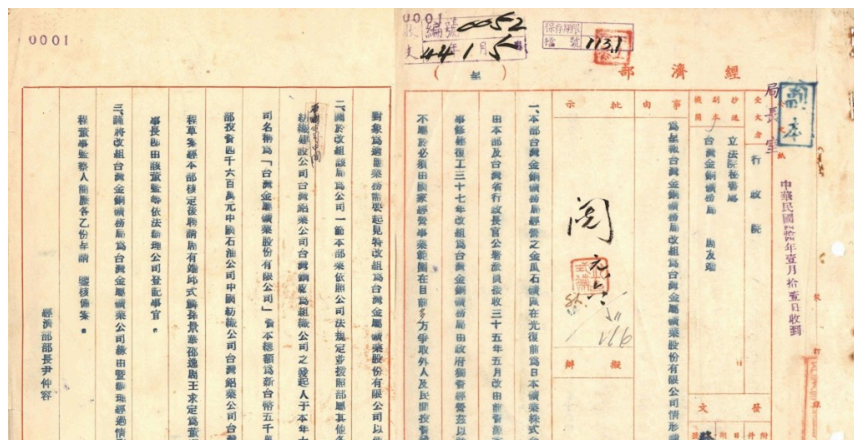 0001
0001
收 編號 0052
文 44年1月5
保存期限
檔號 113.1
經濟部
副本
局長室
中華民國 年壹月拾 日收到
受文者
行政院
抄送副本機關
立法院秘書處
台灣金銅礦務局
事由
批示
擬辦
發文
閱
為呈報台灣金銅礦務局改組為台灣金屬礦業股份有限公司情形
一、本部台灣金銅礦務局經營之金瓜石礦區在光復前為日本礦業株式
由本部及台灣省行政長官公署派員接收三十五年五月改由前資
事修建復工三十七年改組為台灣金銅礦務局由政府獨資經營茲以
不屬於必須由國家經營事業範圍在目前多方爭取外人及民間投資
對象為適應業務需要起見特改組為台灣金屬礦業股份有限公司以
二、關於改組該局為公司一節本部業依照公司法規定並援照部屬其他
紡織建設公司台灣鋁業公司台灣鋼廠為組織公司之發起人于本年
司名稱為「台灣金屬礦業股份有限公司」資本總額為新台幣五千
部投資四千六百萬元中國石油公司中國紡織公司台灣鋁業公司台
程草案經本部核定後聘請
事長即由該董監等依法辦理公司登記事宜。
三、謹將改組台灣金銅礦務局為台灣金屬礦業公司緣由暨辦理經過情
程董事監察人簡歷各乙份呈請 鑒核備案。
經濟部部長尹仲容